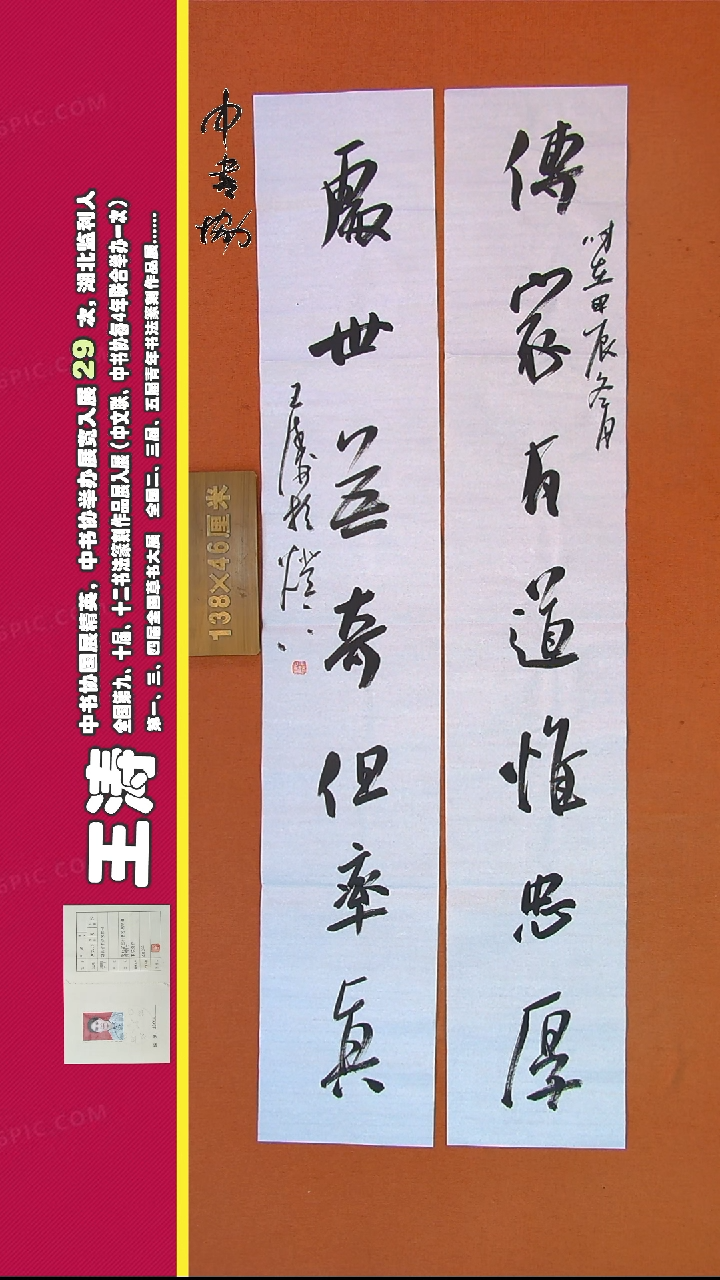 傳家有道惟忠厚
时在甲辰冬月
處世無奇但率真
王涛於灯下
中书协
138×46厘米
中书协国展精英，中书协举办展览入展29次，湖北监利人
全国第九、十届、十二书法篆刻作品展入展（中文联，中书协每4年联合举办一次）
第一、三、四届全国草书大展 全国二、三届、五届青年书法篆刻作品展......
王涛